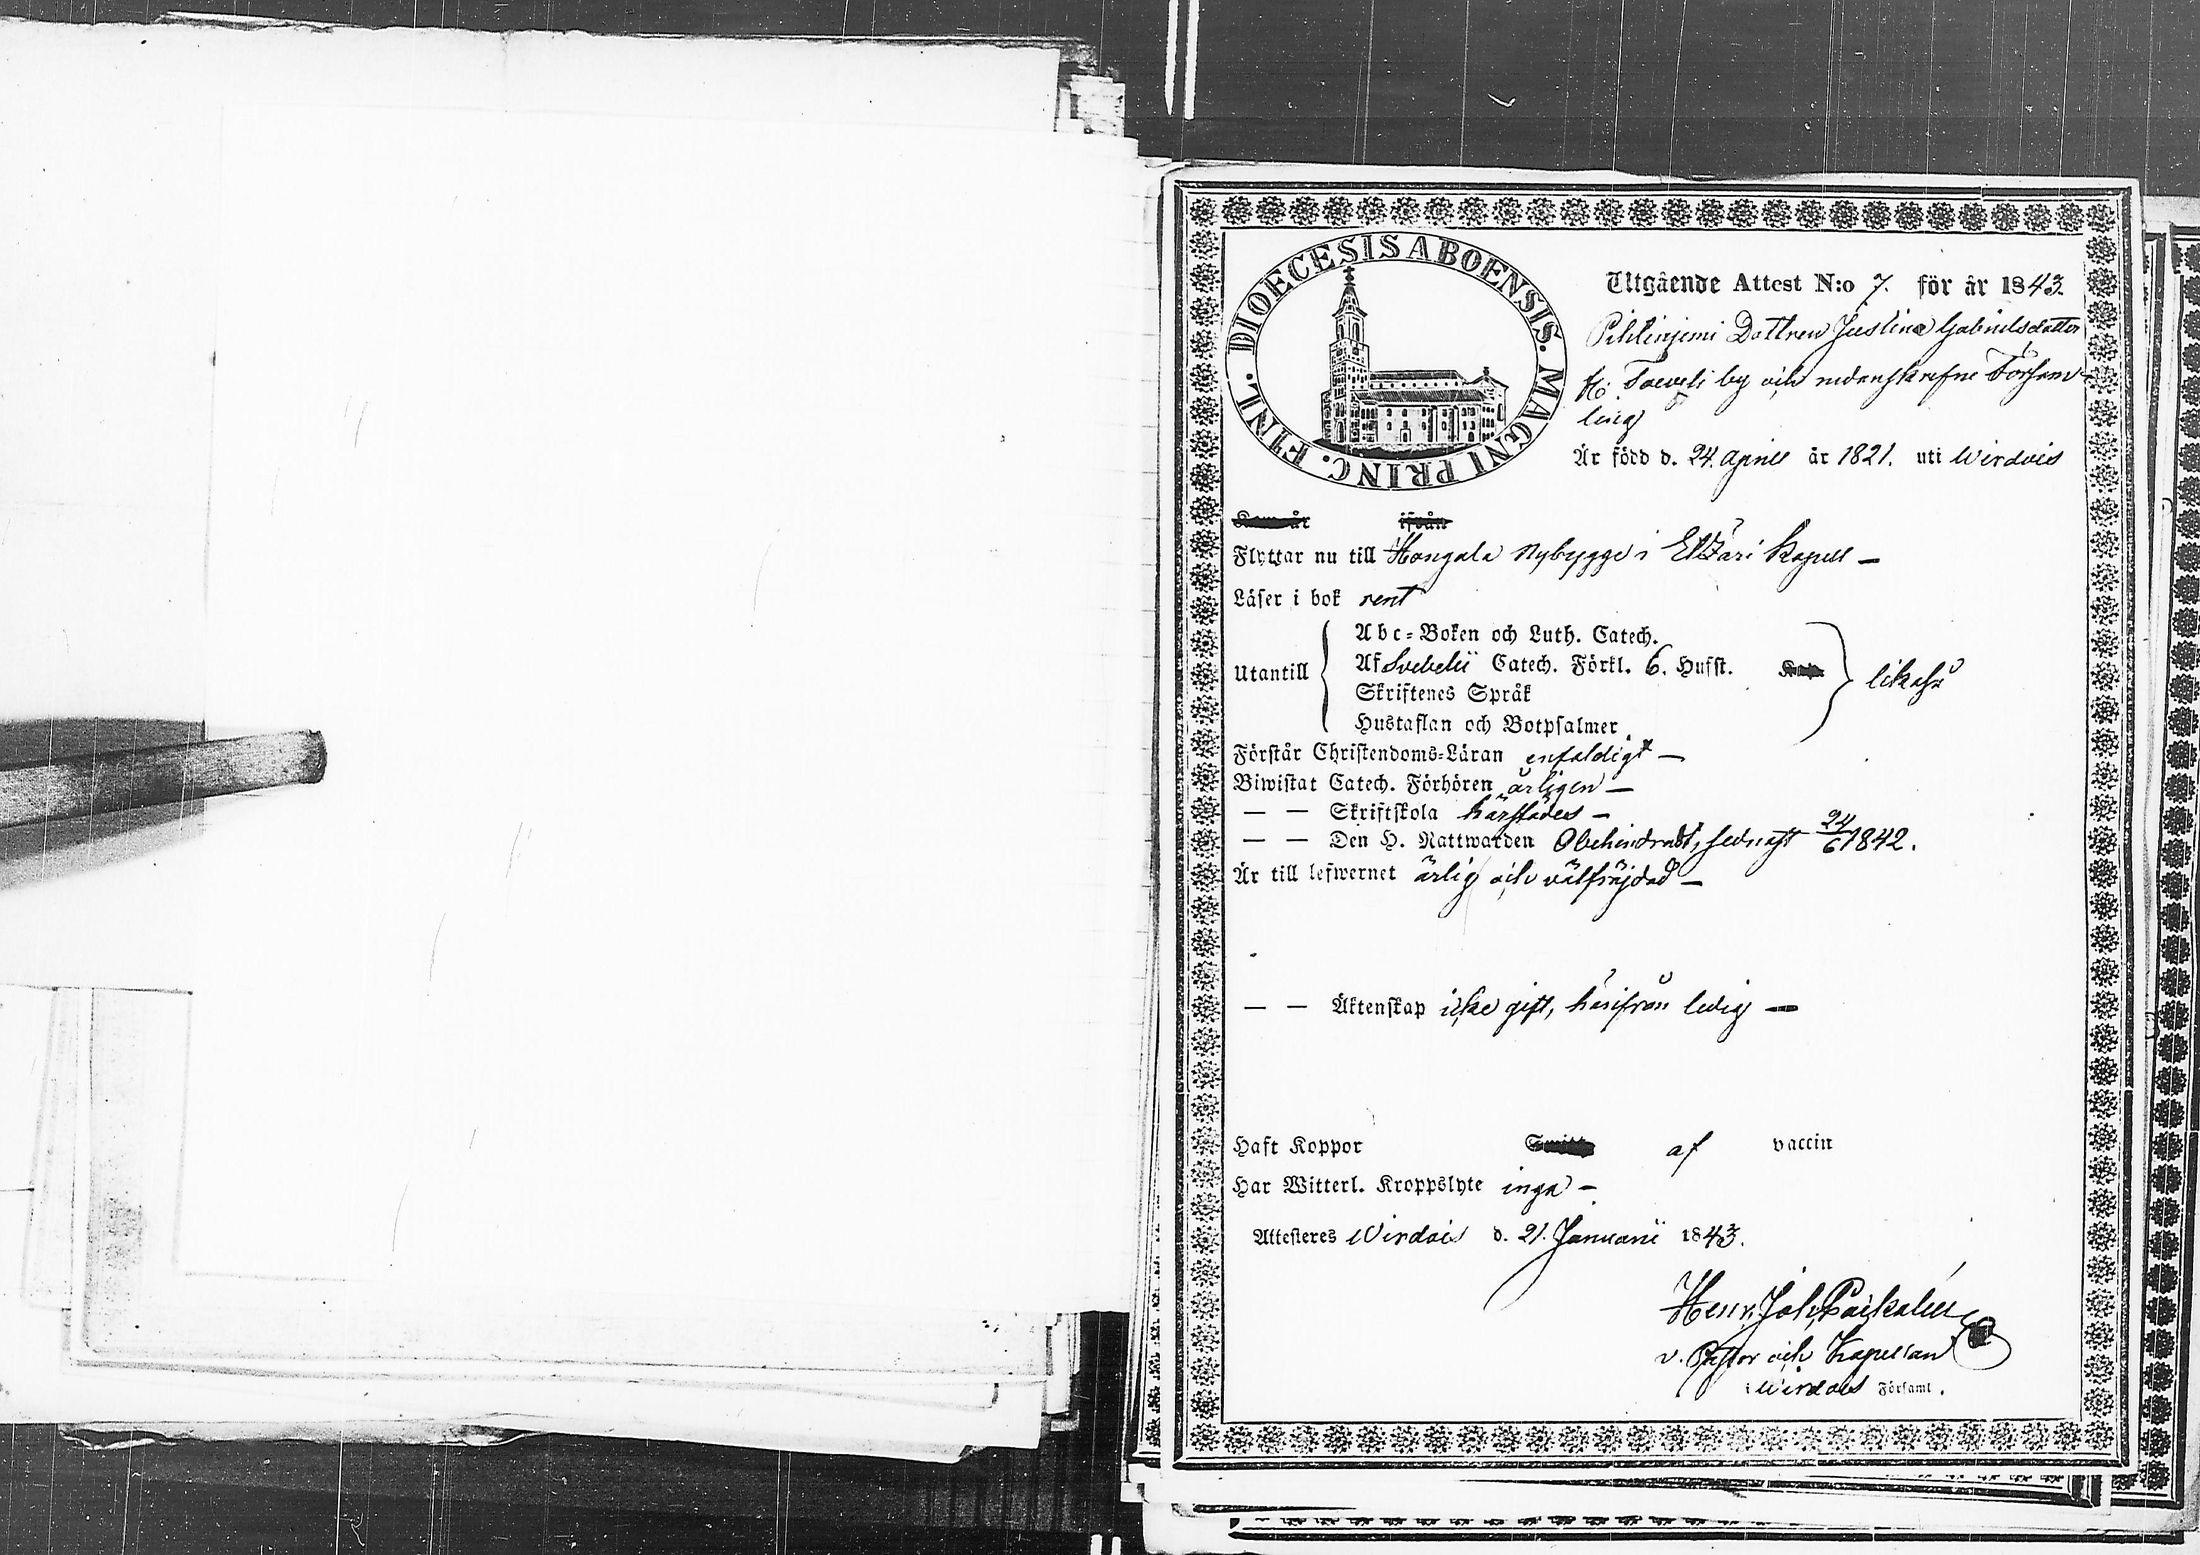 DIOECESIS ABOENSIS. MAGNI PRINC. FINL.
Utgående Attest N:o 7. för år 1843.
Dottren Justina Gabrielsdotter
by och nedanskrefne Försam-
ling
Är född d. 24. April år 1821. uti Wirdois
Flyttar nu till Hongala Nybygge i Etzäri Kapell –
Läser i bok rent
Utantill
Abc-Boken och Luth. Catech.
Af Svebelii Catech. Förkl. 6. Hufst.
Skriftenes Språk
Hustaflan och Botpsalmer
likaså
Förstår Christendoms-Läran enfaldigt –
Biwistat Catech. Förhören årligen –
— — Skriftskola härstädes –
— — Den H. Nattwarden Obehindradt, sednast 24/6 1842.
Är till lefwernet ärlig och välfräjdad –
— — Äktenskap icke gift, härifrån ledig —
Haft Koppor af vaccin
Har Witterl. Kroppslyte inga –
Attesteres Wirdois d. 21. Januarii 1843.
Henr. Joh.
v. Pastor och Kapellan
i Wirdois Församl.